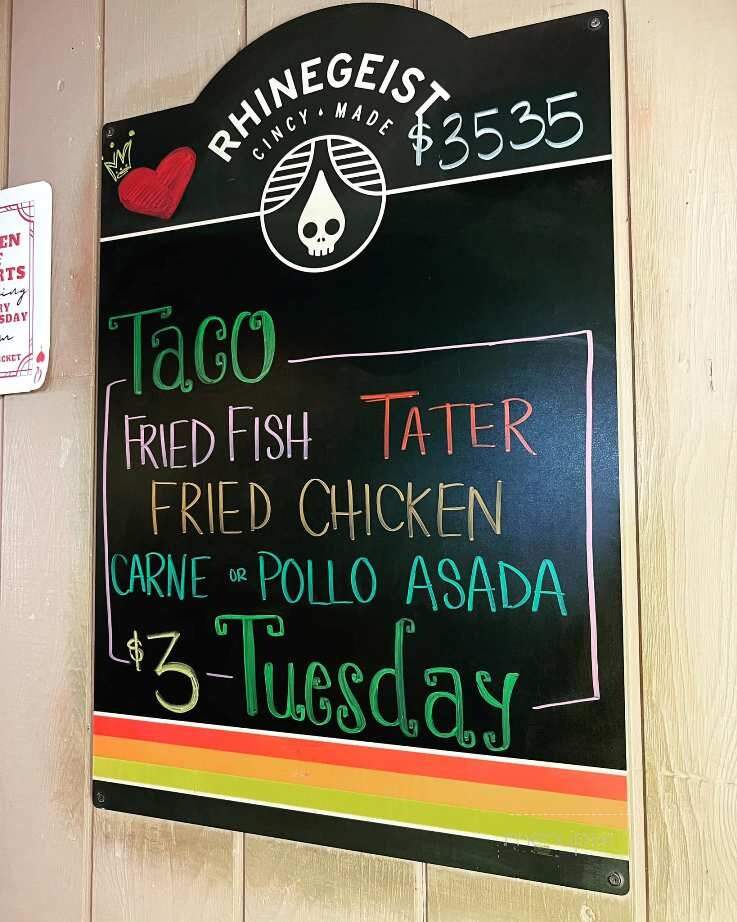 RHINEGEIST
CINCY • MADE
$3535
Taco
FRIED FISH TATER
FRIED CHICKEN
CARNE OR POLLO ASADA
$3 - Tuesday